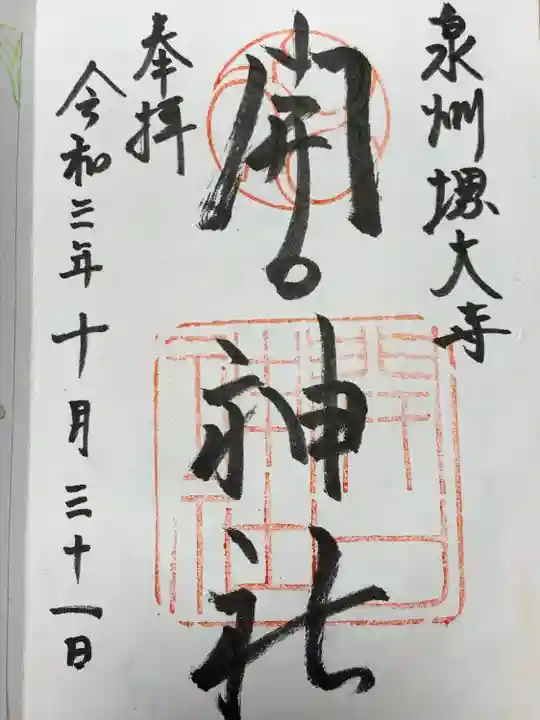 泉州堺大寺
開口神社
奉拝
令和三年十月三十一日
開口
神社